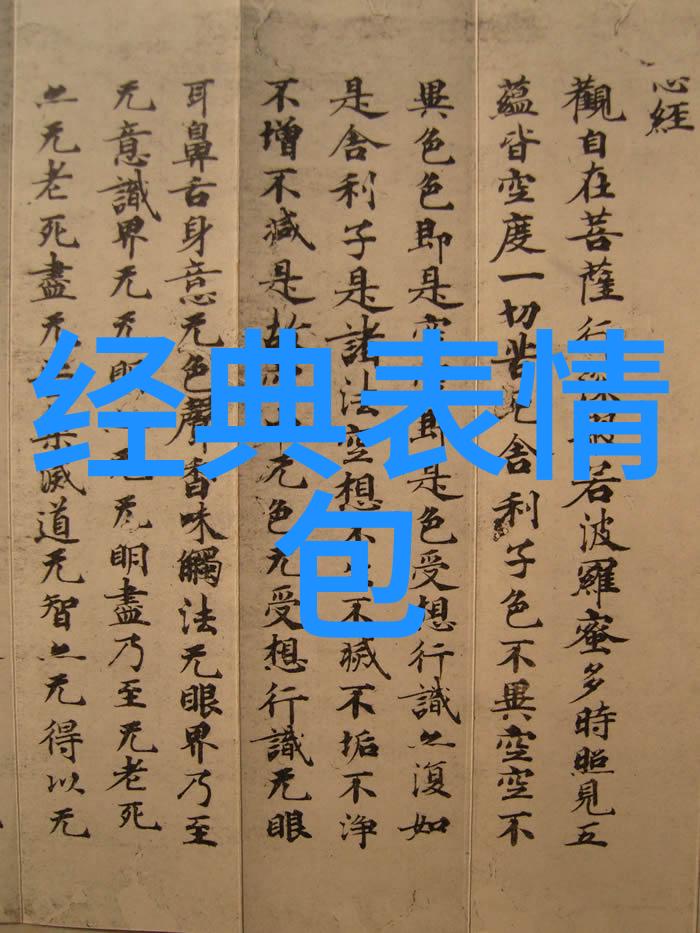 心経
觀自在菩薩行若波羅蜜多時照見五
蘊皆空度一切苦厄舍利子色不異空空不
異色色即是空即是色受想行識亦復如
是舍利子是諸法空想不不滅不垢不淨
不增不減是故无色无受想行識无眼
耳鼻舌身意无色聲香味觸法无眼界乃至
无意識界无无明无无明盡乃至无老死
亦无老死盡无集滅道无智亦无得以无
经典表情
包